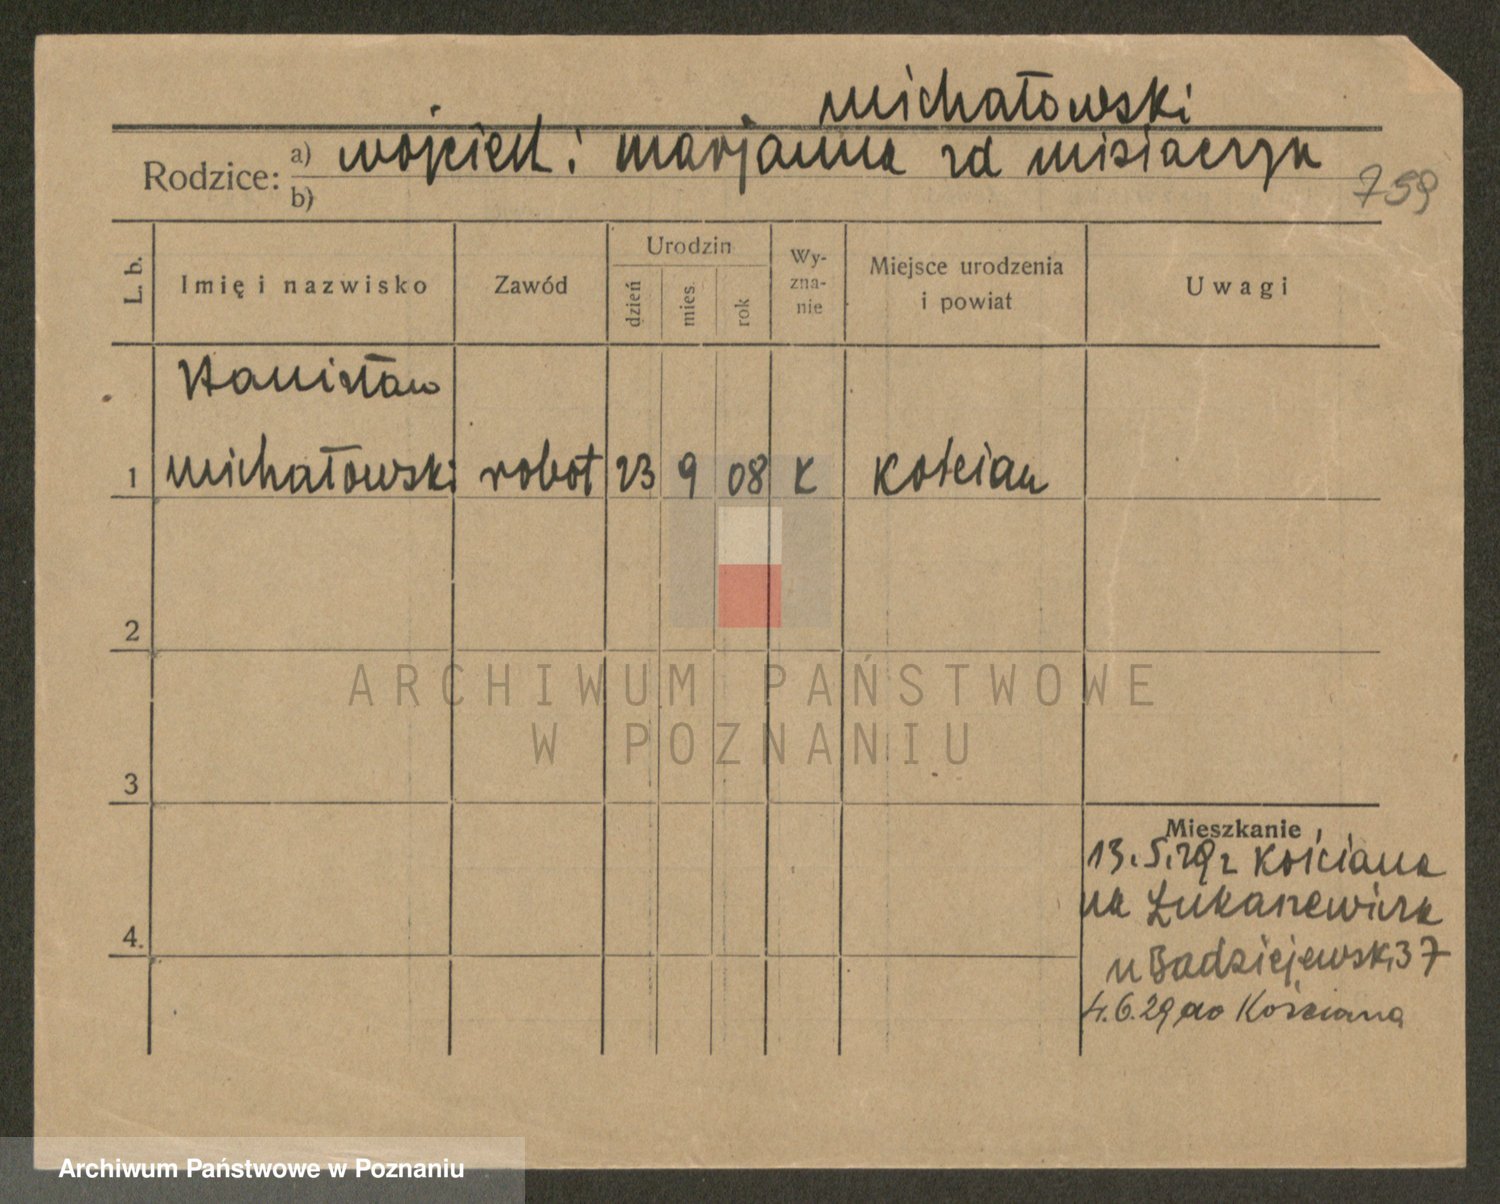 Michałowski
Rodzice: a) Wojciech i Marjanna zd Misiaczyk
b)
759
L. b.
Imię i nazwisko
Zawód
Urodzin
dzień
mies.
rok
Wy-
zna-
nie
Miejsce urodzenia
i powiat
Uwagi
Stanisław
1 Michałowski robot 23 9 08 K Kościan
2
3
4.
Mieszkanie
13.5.29 z Kościana
na Łukaszewicza
u Badziejewski 37
4.6.29 do Kościana
ARCHIWUM PAŃSTWOWE
W POZNANIU
Archiwum Państwowe w Poznaniu